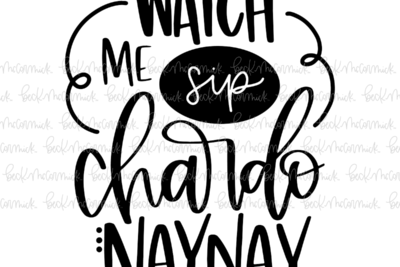 WATCH
ME sip
chardo
NAYNAY